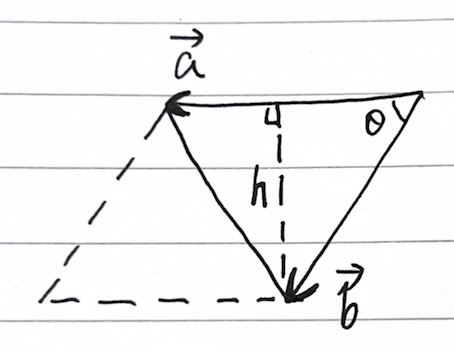 a⃗
θ
h
b⃗